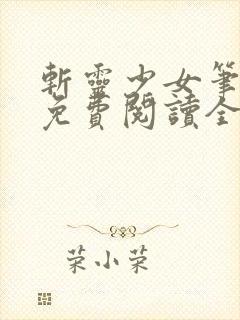 斬靈少女筆
免費閱讀全
菜小菜